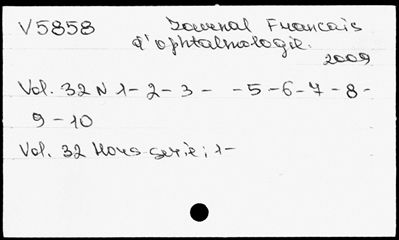 V5858 Journal Francais
d'ophtalmologie.
2009
Vol. 32 N 1- 2- 3 - - 5 - 6 - 7 - 8 -
9 - 10
Vol. 32 Hors serie; 1-